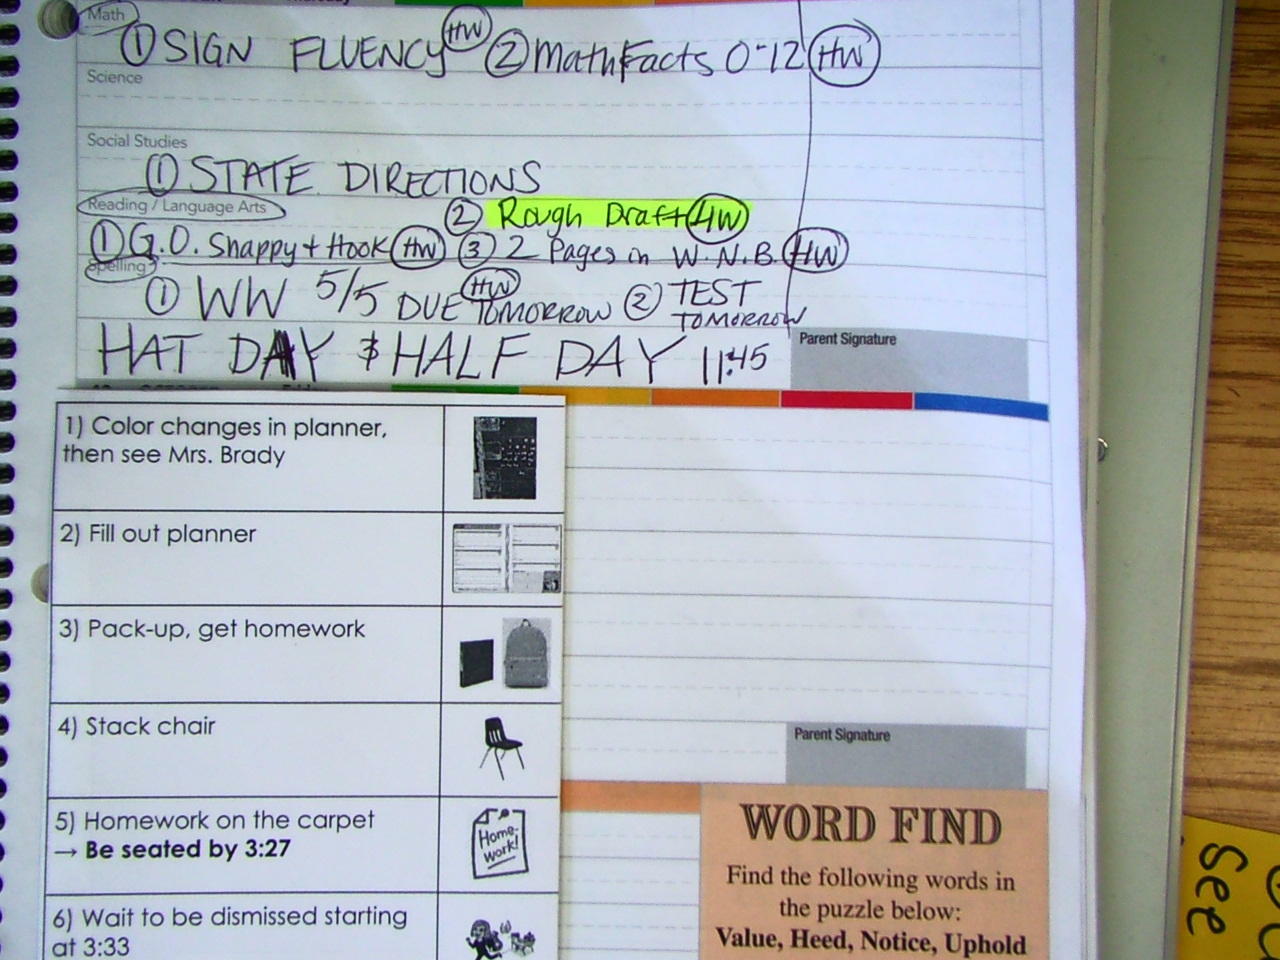 Math
① SIGN FLUENCY HW ② Math Facts 0-12 HW
Science
Social Studies
① STATE DIRECTIONS
Reading / Language Arts
② Rough Draft HW
① G.O. Snappy + Hook HW ③ 2 Pages in W.N.B. HW
Spelling
① WW 5/5 DUE TOMORROW HW ② TEST TOMORROW
HAT DAY & HALF DAY 11:45
Parent Signature
1) Color changes in planner,
then see Mrs. Brady
2) Fill out planner
3) Pack-up, get homework
4) Stack chair
Parent Signature
5) Homework on the carpet
→ Be seated by 3:27
Home-
work!
6) Wait to be dismissed starting
at 3:33
WORD FIND
Find the following words in
the puzzle below:
Value, Heed, Notice, Uphold
See